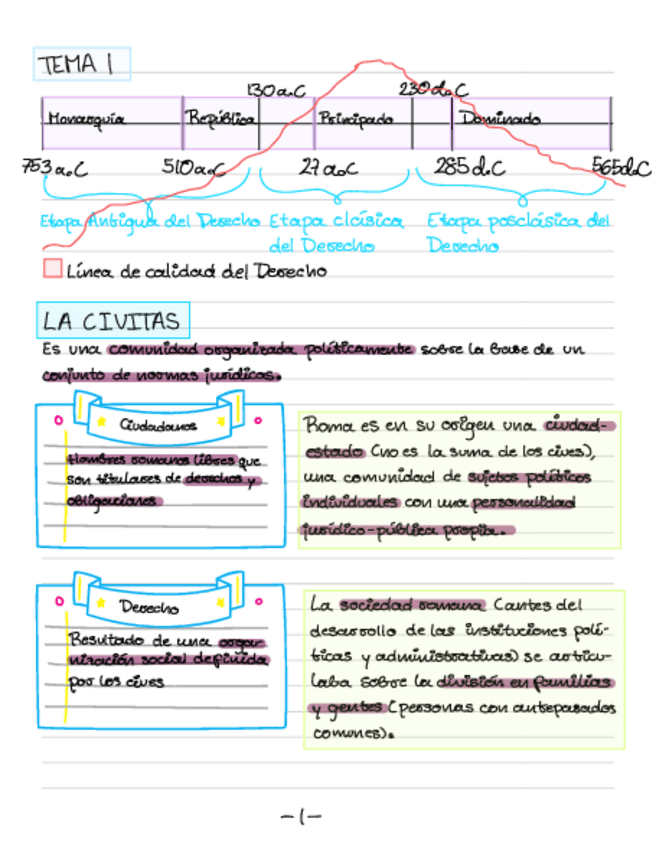 TEMA 1
130a.C 230d.C
Monarquía República Principado Dominado
753a.C 510a.C 27a.C 285d.C 565d.C
Etapa Antigua del Derecho Etapa clásica Etapa posclásica del
del Derecho Derecho
Línea de calidad del Derecho
LA CIVITAS
Es una comunidad organizada políticamente sobre la base de un
conjunto de normas jurídicas.
Ciudadanos
Hombres romanos libres que
son titulares de derechos y
obligaciones
Roma es en su origen una ciudad-
estado (no es la suma de los cives),
una comunidad de sujetos políticos
individuales con una personalidad
jurídico-pública propia.
Derecho
Resultado de una orga-
nización social definida
por los cives
La sociedad romana (antes del
desarrollo de las instituciones polí-
ticas y administrativas) se articu-
laba sobre la división en familias
y gentes (personas con antepasados
comunes).
-1-